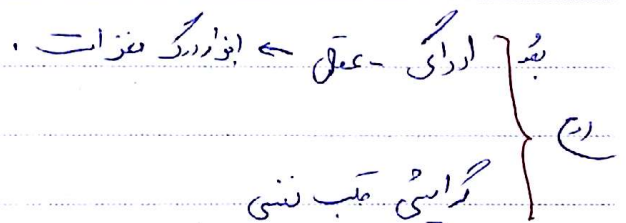 بُعد } ادراکی - عقلی ← ابزار درک مغز است .
روح
گرایشی قلب نفسی